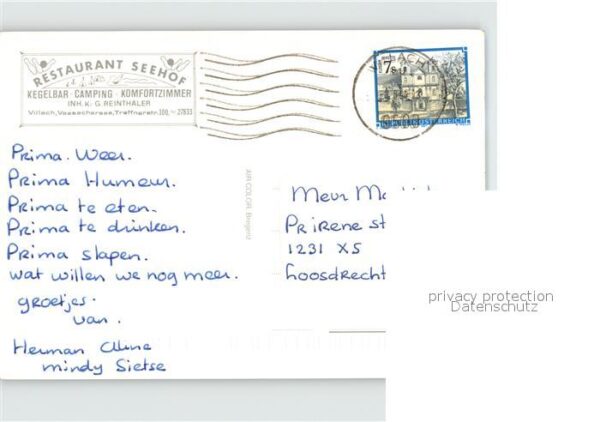 RESTAURANT SEEHOF
KEGELBAR · CAMPING · KOMFORTZIMMER
INH. K. G. REINTHALER
Villach, Vassacherse, Treffnerstr. 100, 27833
VILLACH
7
REPUBLIK ÖSTERREICH
Prima Weer.
Prima Humeur.
Prima te eten.
Prima te drinken.
Prima slapen.
wat willen we nog meer.
groetjes.
van.
Herman
mindy Sietse
AIR COLOR, Bregenz
Mevr
Pr Irene st
1231 XS
Loosdrecht
privacy protection
Datenschutz